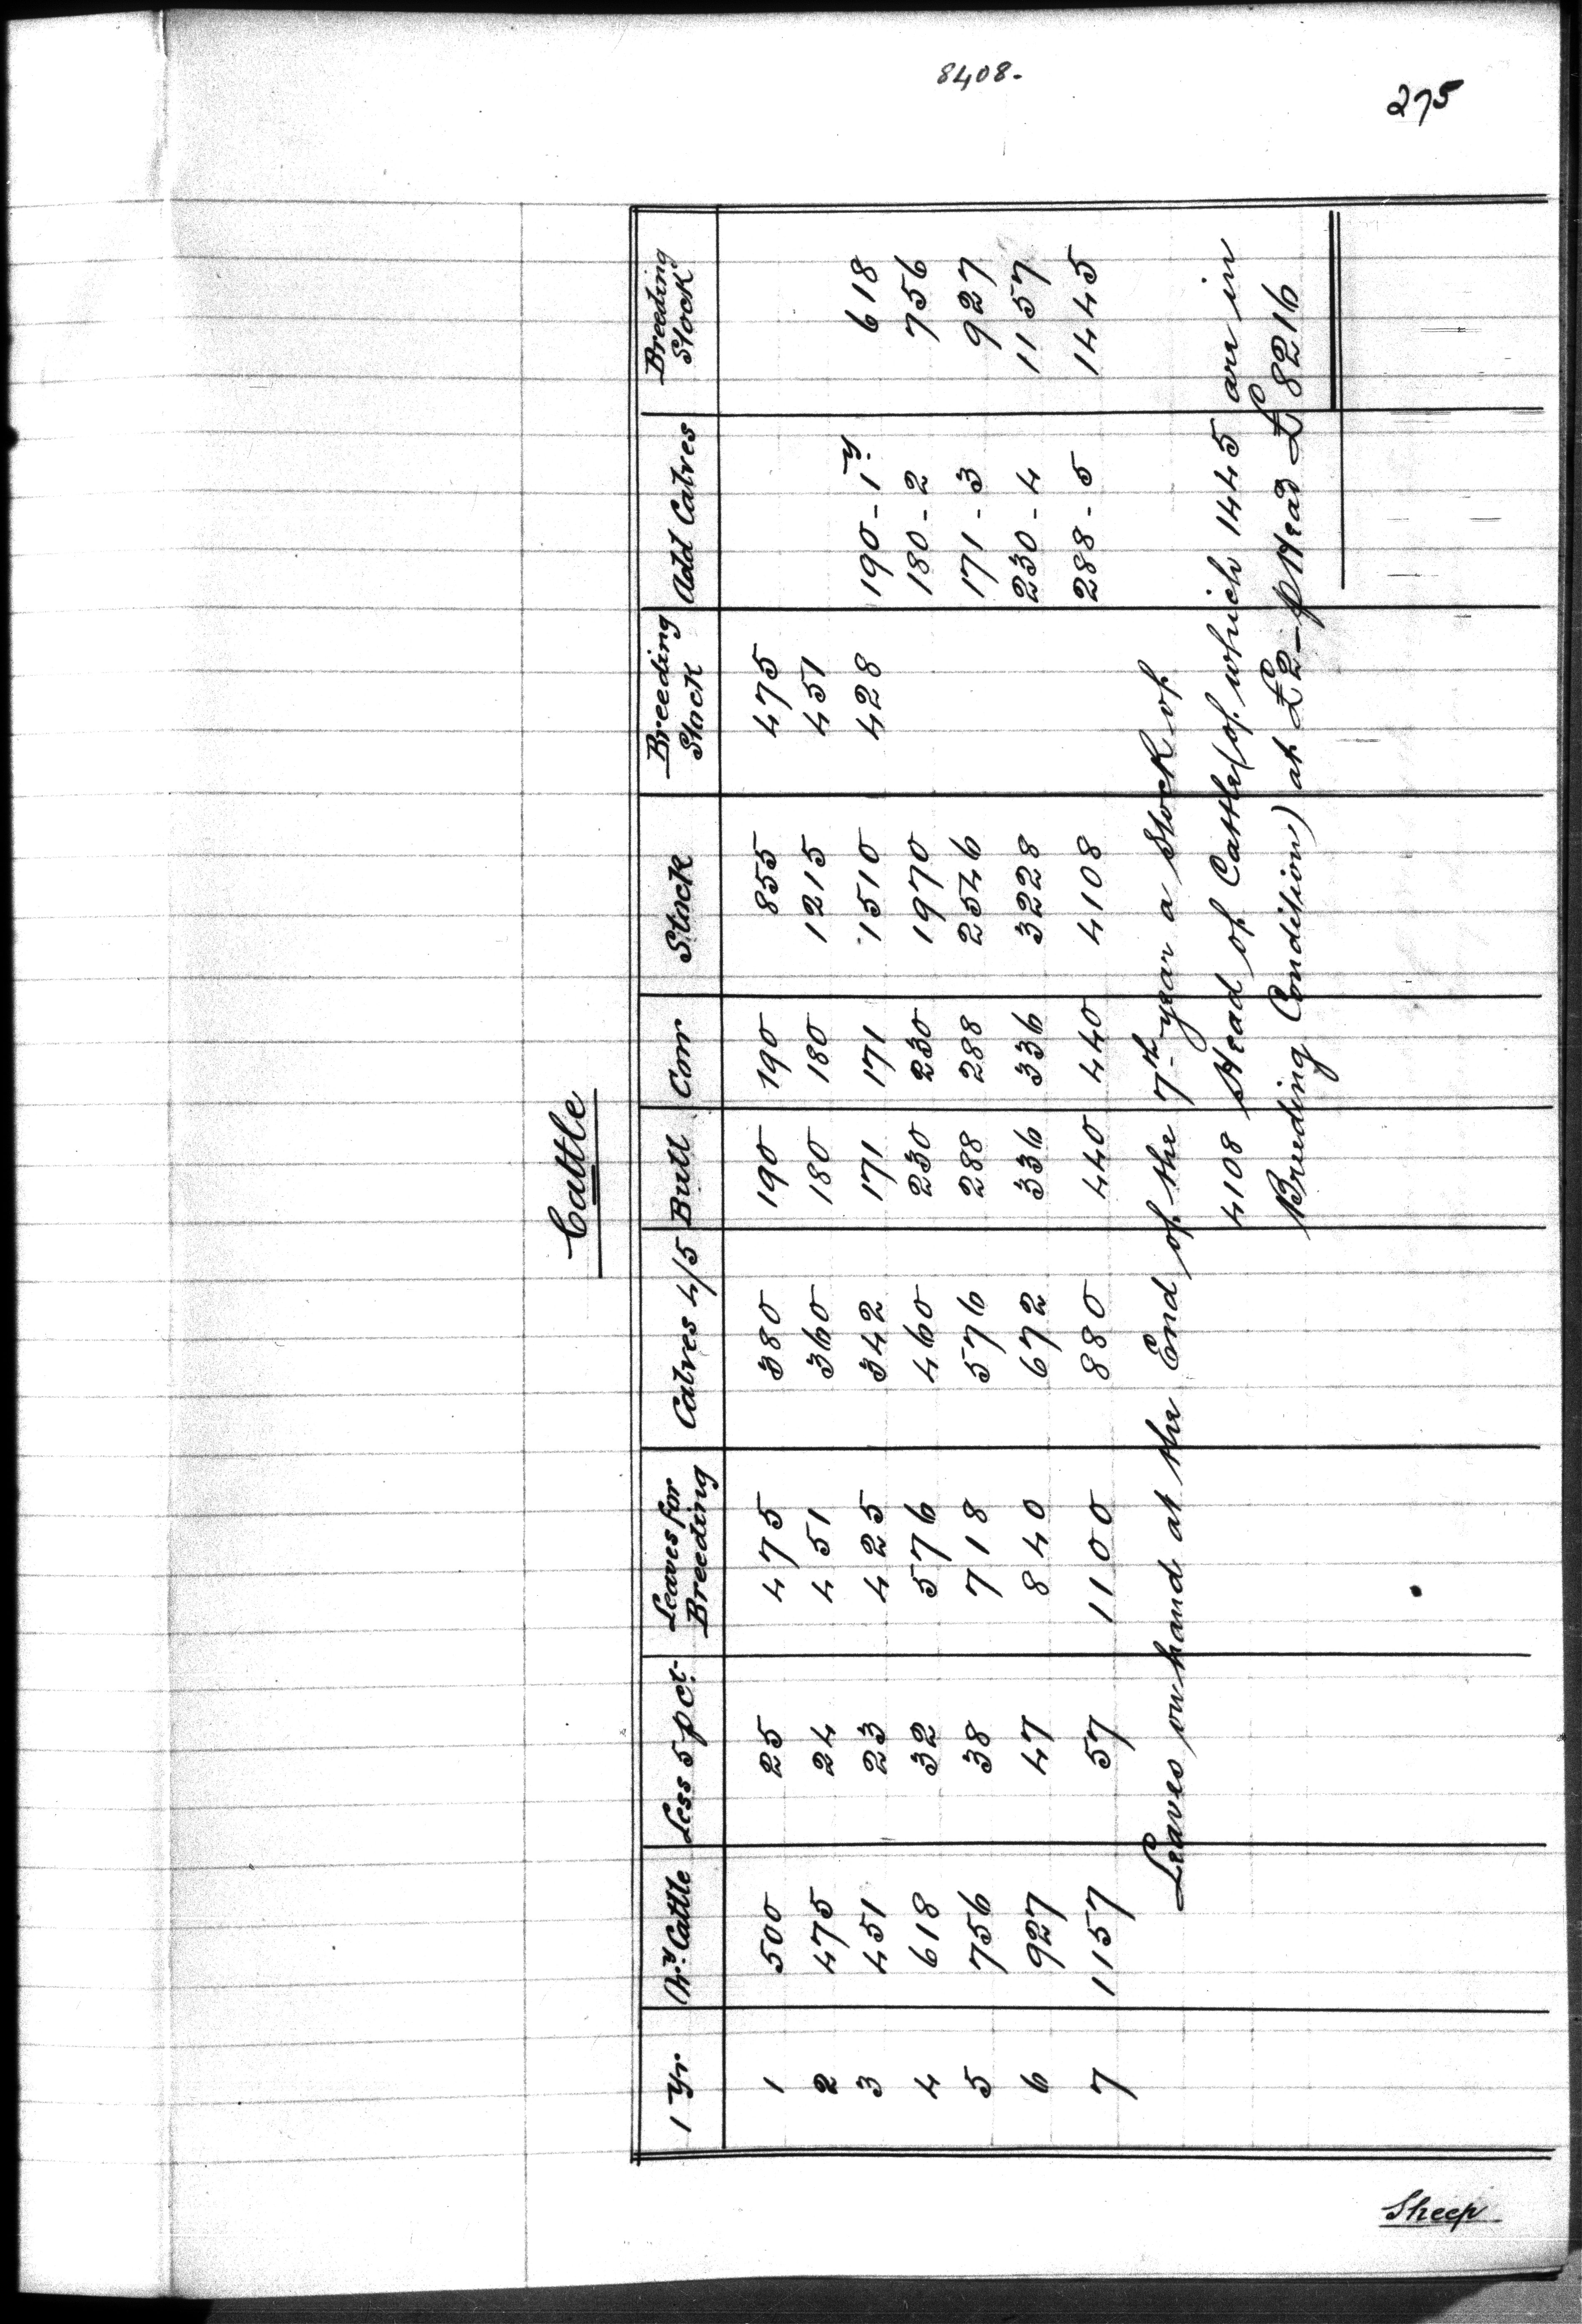 8408.
275
Cattle
1 Yr | Ory. Cattle | Less 5 p Ct. | Leaves for Breeding | Calves 4/5 | Bull | Cow | Stock | Breeding Stock | Add Calves | Breeding Stock
1 | 500 | 25 | 475 | 380 | 190 | 190 | 855 | 475
2 | 475 | 24 | 451 | 360 | 180 | 180 | 1215 | 451
3 | 451 | 23 | 425 | 342 | 171 | 171 | 1510 | 428 | 190 - 1 y. | 618
4 | 618 | 32 | 576 | 460 | 230 | 230 | 1970 | | 180 - 2 | 756
5 | 756 | 38 | 718 | 576 | 288 | 288 | 2546 | | 171 - 3 | 927
6 | 927 | 47 | 840 | 672 | 336 | 336 | 3228 | | 230 - 4 | 1157
7 | 1157 | 57 | 1100 | 880 | 440 | 440 | 4108 | | 288 - 5 | 1445
Leaves on hand at the End of the 7th year a Stock of
4108 Head of Cattle (of which 1445 are in
Breeding Condition) at £2 - p Head £8216
Sheep